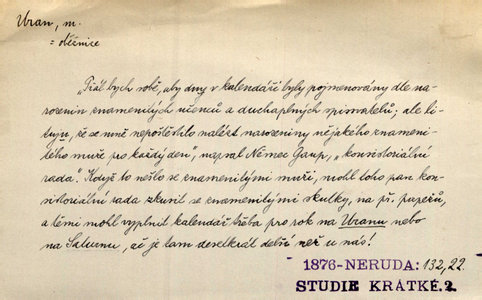 Uran, m.
= oběžnice
„Přál bych sobě, aby dny v kalendáři byly pojmenovány dle na-
rozenin znamenitých učenců a duchaplných spisovatelů; ale li-
tuju, že se mně nepoštěstilo nalézt narozeniny nějakého zname-
tého muže pro každý den", napsal Němec Gaup, „konsistoriální
rada". Když to nešlo se znamenitými muži, mohl toho pan kon-
sistoriální rada zkusit se znamenitými skutky, na př. papežů,
a těmi mohl vyplnit kalendář třeba pro rok na Uranu nebo
na Saturnu, ač je tam desetkrát delší než u nás!
1876-NERUDA: 132,22.
STUDIE KRÁTKÉ.2.